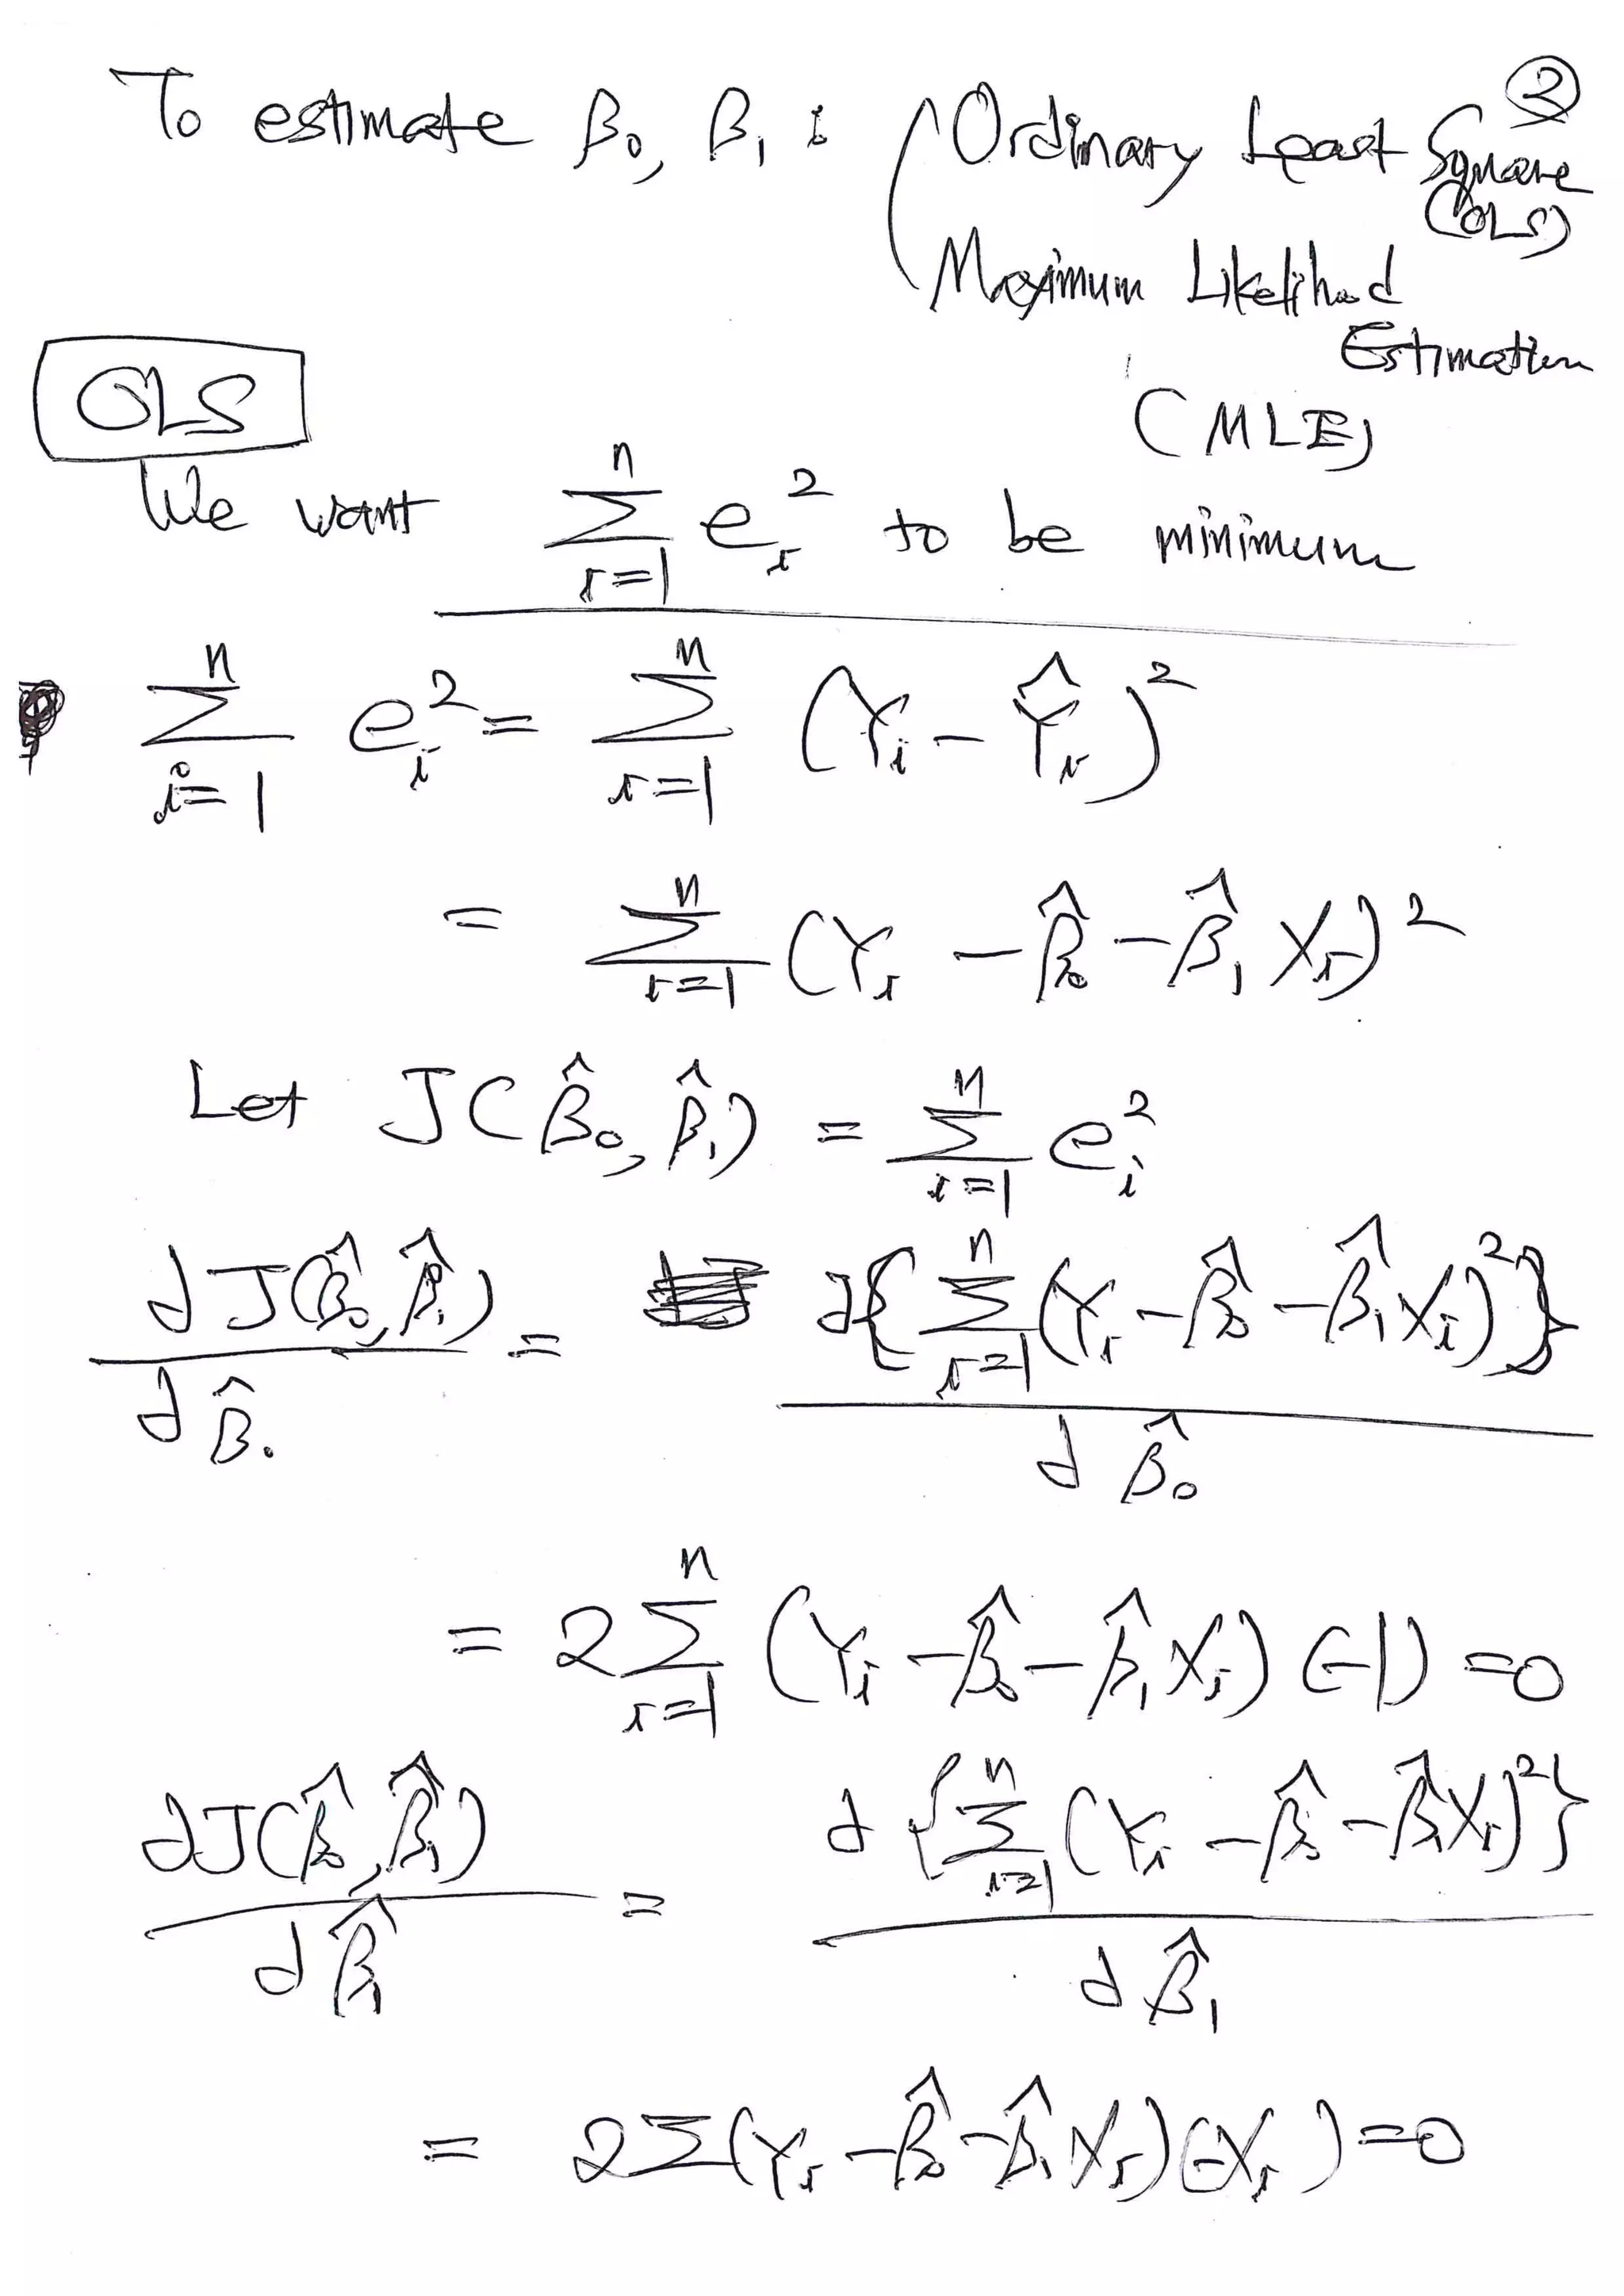 ②
To estimate β₀, β₁ : ( Ordinary Least Square
(OLS)
Maximum Likelihood
Estimation
(MLE)
OLS
We want Σ_{i=1}^{n} e_i² to be minimum
Σ_{i=1}^{n} e_i² = Σ_{i=1}^{n} (Y_i - Ŷ_i)²
= Σ_{i=1}^{n} (Y_i - β̂₀ - β̂₁ X_i)²
Let J(β̂₀, β̂₁) = Σ_{i=1}^{n} e_i²
dJ(β̂₀, β̂₁) / dβ̂₀ = d{Σ_{i=1}^{n} (Y_i - β̂₀ - β̂₁ X_i)²} / dβ̂₀
= 2 Σ_{i=1}^{n} (Y_i - β̂₀ - β̂₁ X_i) (-1) = 0
dJ(β̂₀, β̂₁) / dβ̂₁ = d{Σ_{i=1}^{n} (Y_i - β̂₀ - β̂₁ X_i)²} / dβ̂₁
= 2Σ(Y_i - β̂₀ - β̂₁ X_i)(-X_i) = 0